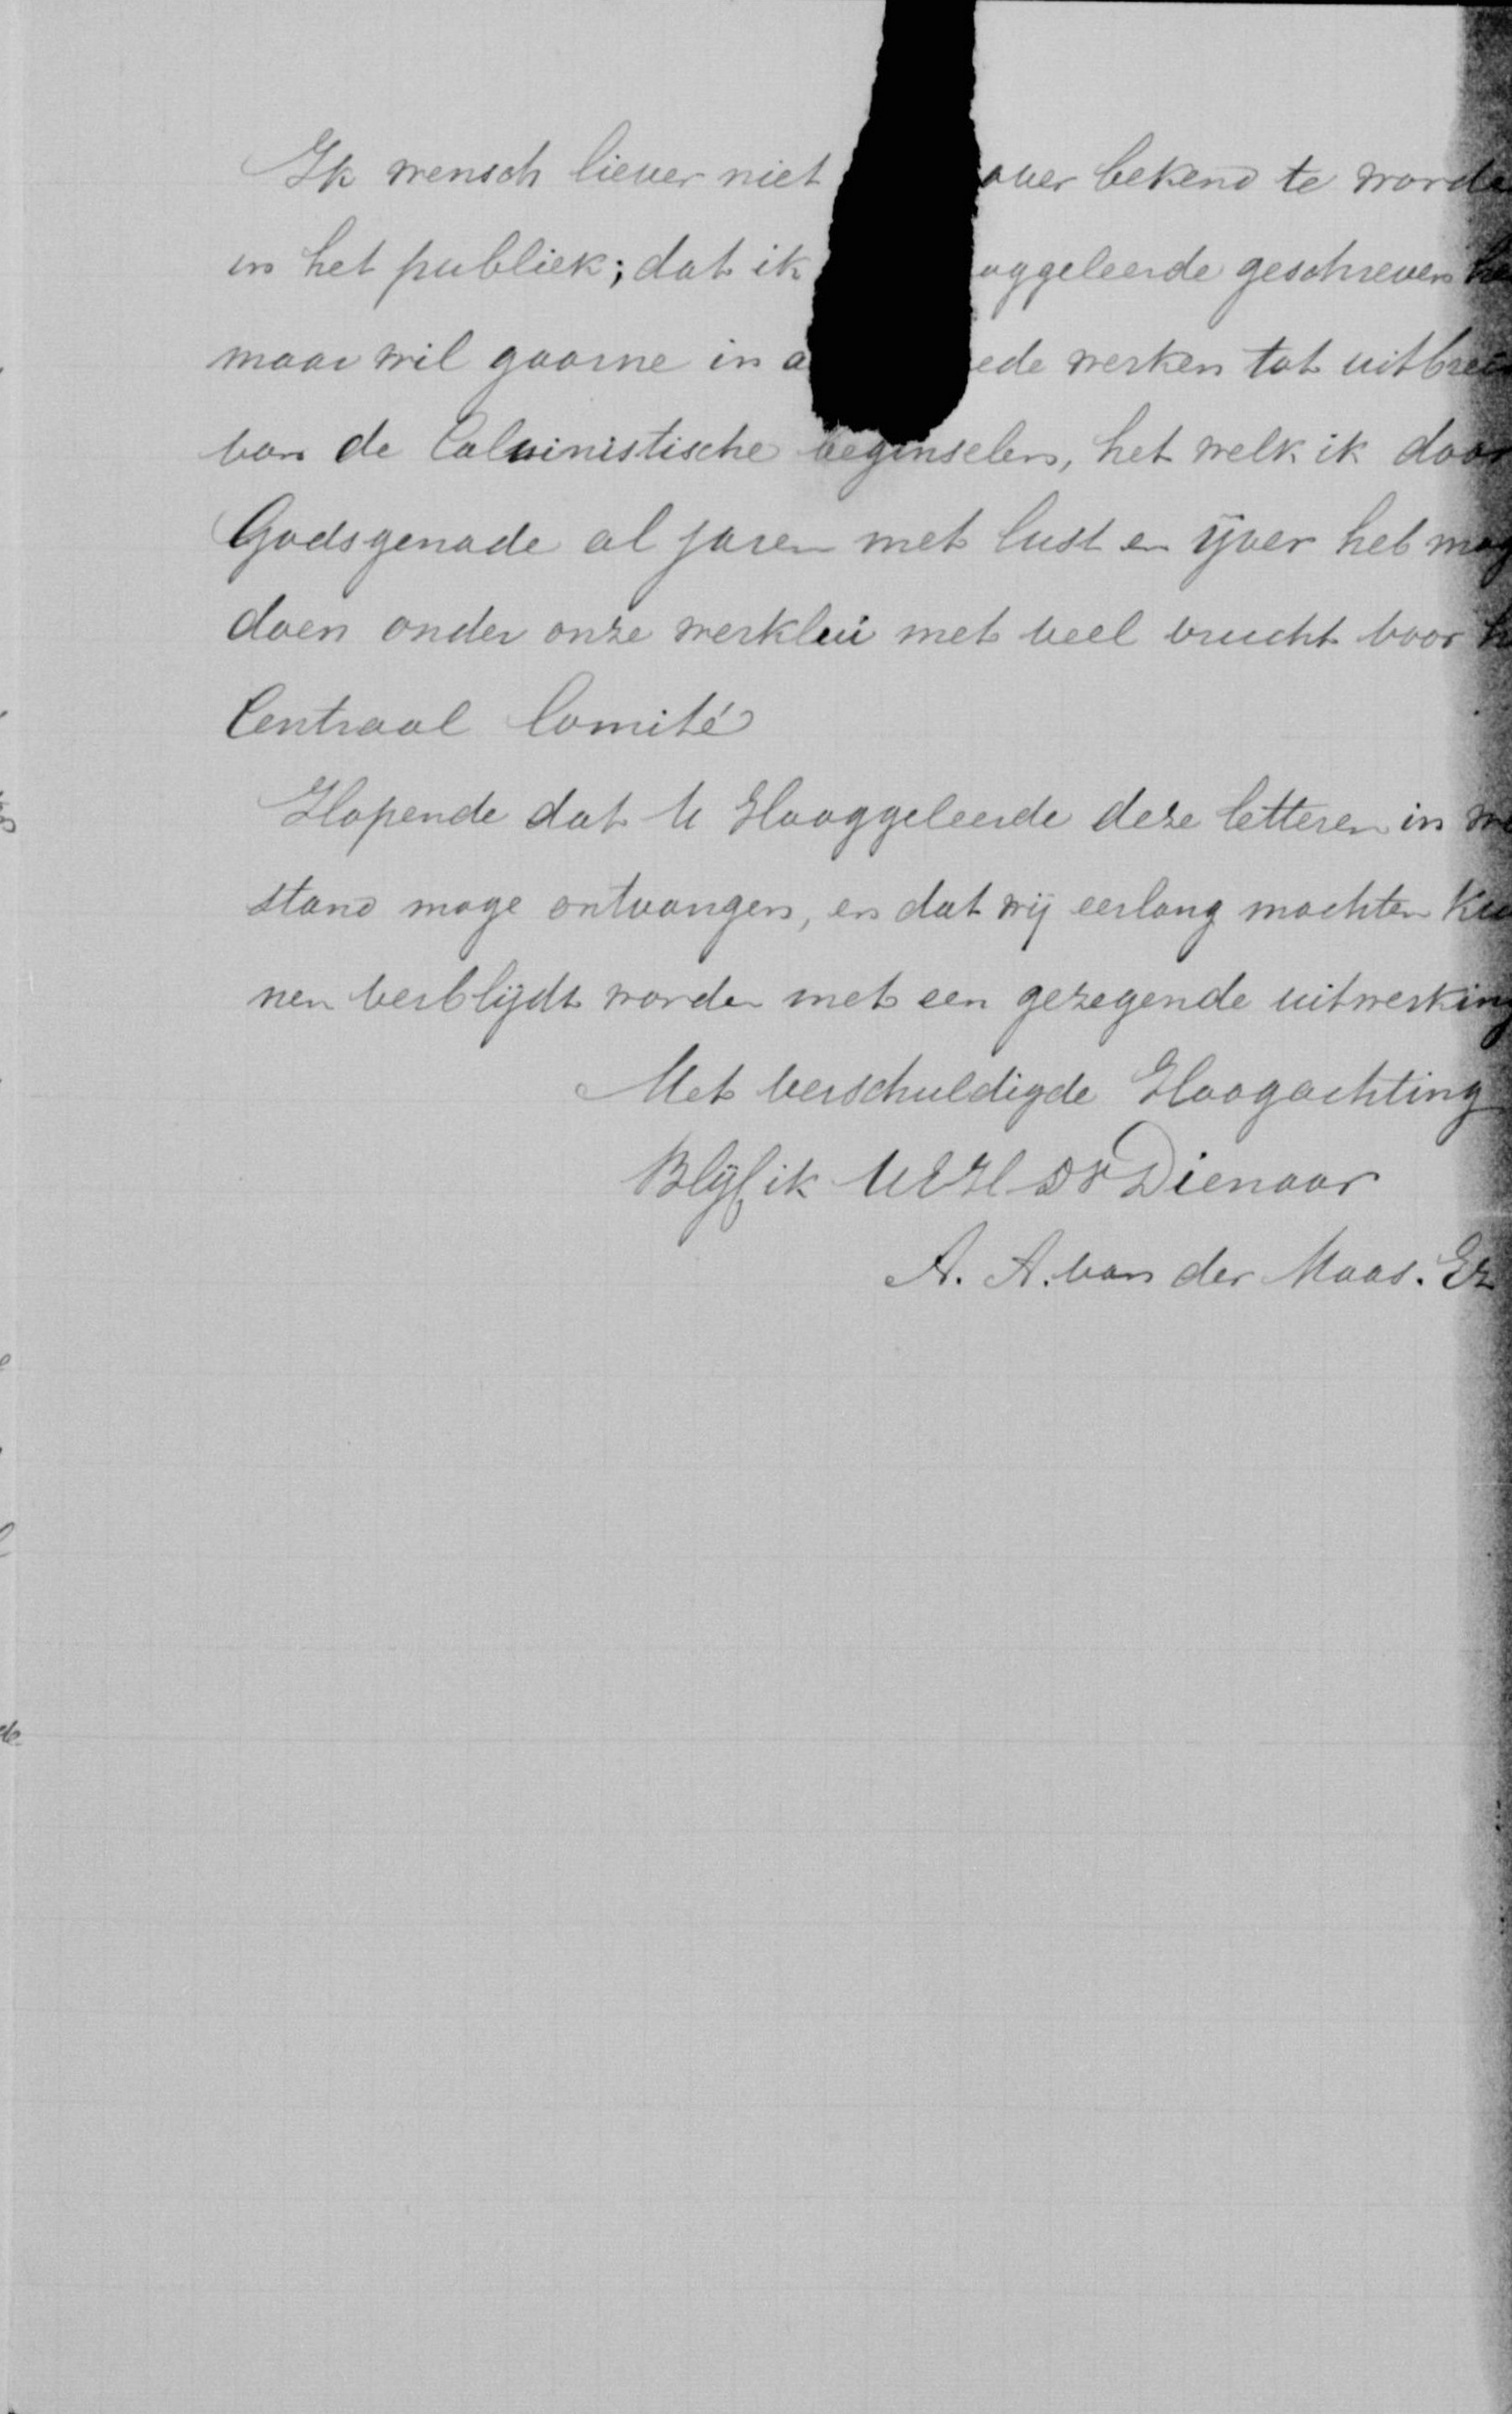 Ik wensch liever niet over bekend te worde
in het publiek; dat ik oggeleerde geschreven
maar wil gaarne in a ede werken tot uitbrei
van de Calvinistische beginselen, het welk ik door
Godsgenade al jaren met lust en ijver heb mog
doen onder onze werklui met veel vrucht voor h
Centraal Comité
Hopende dat U Hooggeleerde deze letteren in we
stand moge ontvangen, en dat wij eerlang mochten kun
nen verblijdt worden met een gezegende uitwerking
Met verschuldigde Hoogachting
Blijf ik UEH Dr Dienaar
A. A. van der Maas. Ez